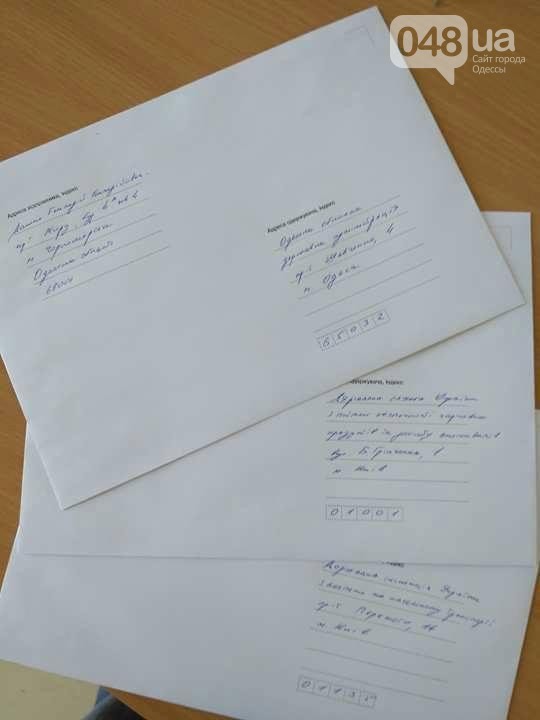 048ua
Сайт города
Одессы
Адреса відправника, індекс
м. Чорноморськ
Одеська області
68004
Адреса одержувача, індекс
Одеська обласна
державна адміністрація
пр-т Шевченка, 4
м. Одеса
65032
одержувача, індекс
Державна служба України
з питань безпечності харчових
продуктів та захисту споживачів
вул. Б. Грінченка, 1
м. Київ
01001
індекс
Державна інспекція України
пр-т Перемоги, 14
м. Київ
0113